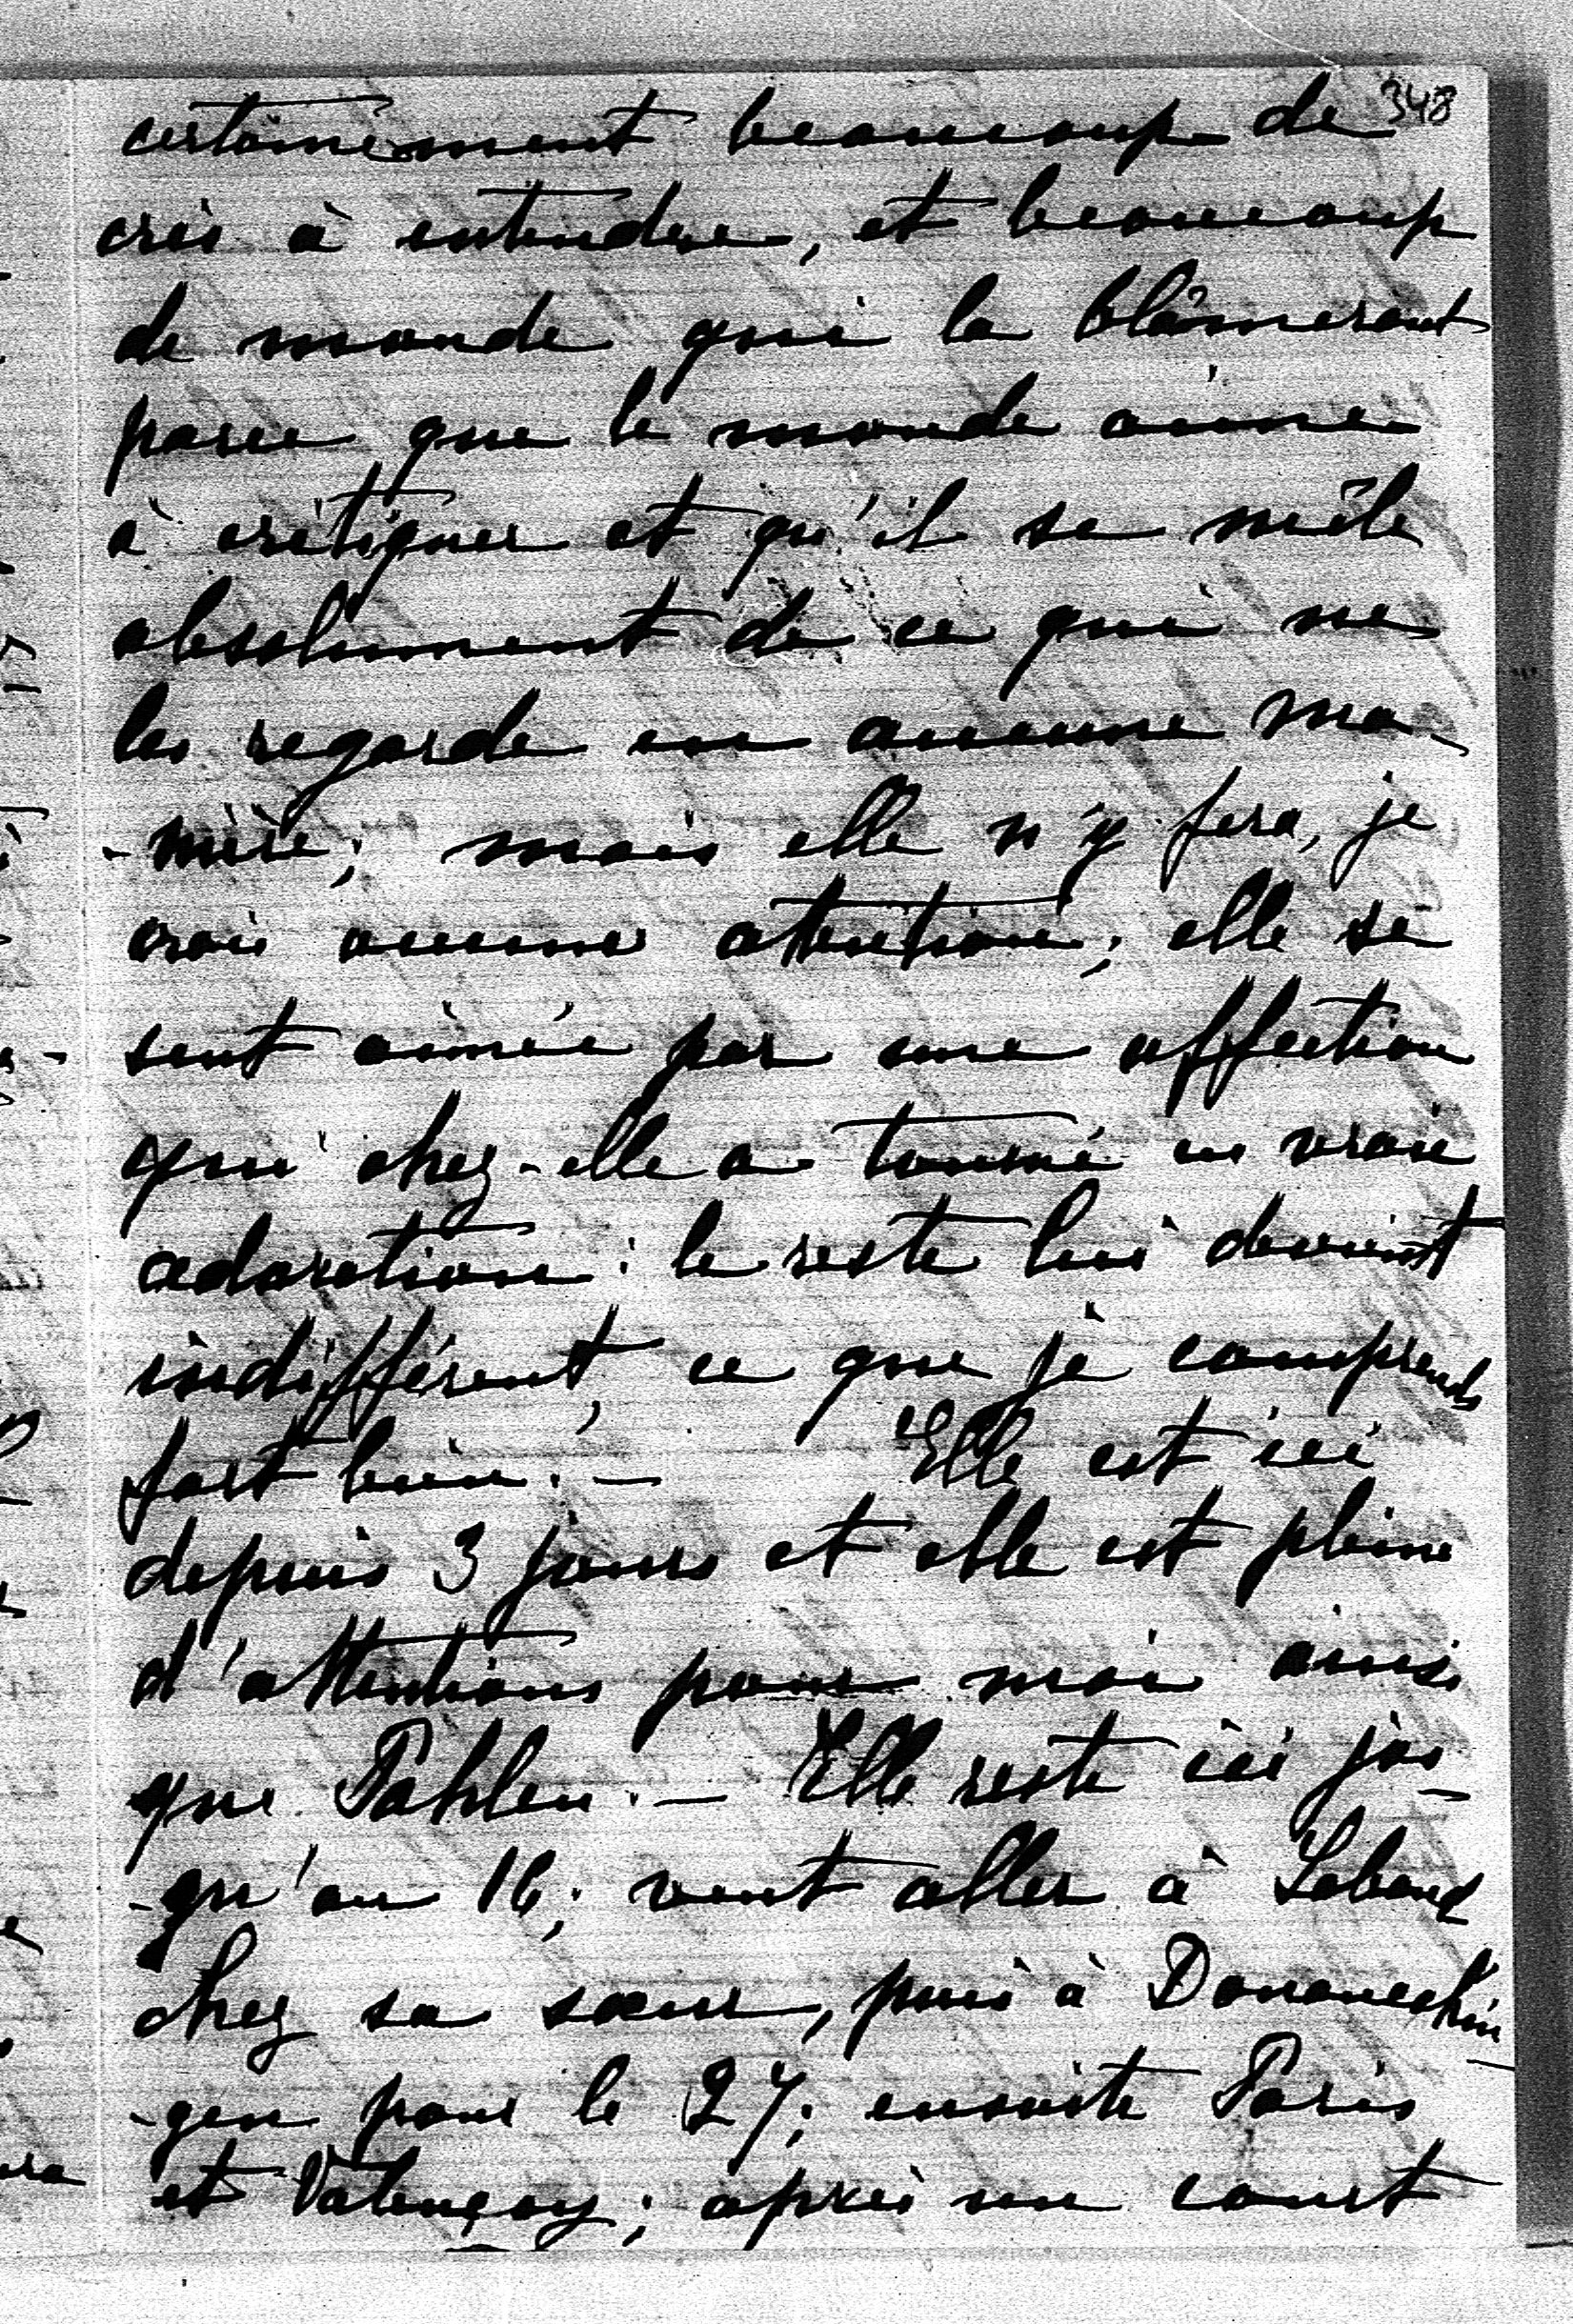 348
certainement beaucoup de
cris à entendre, et beaucoup
de monde qui la blâmeront
parce que le monde aime
à critiquer et qu'il se mêle
absolument de ce qui ne
les regarde en aucune ma-
-nière; mais elle n'y fera, je
crois aucune attention; elle se
sent aimée par une affection
qui chez-elle a tourné en vraie
adoration: le reste lui devient
indifférent, ce que je comprends
fort bien. — Elle est ici
depuis 3 jours et elle est pleine
d'attentions pour moi ainsi
que Pahlen. — Elle reste ici jus-
-qu'au 16; veut aller à Laband
chez sa sœur, puis à Donaueschin-
-gen pour le 27; ensuite Paris
et Valençay; après un court